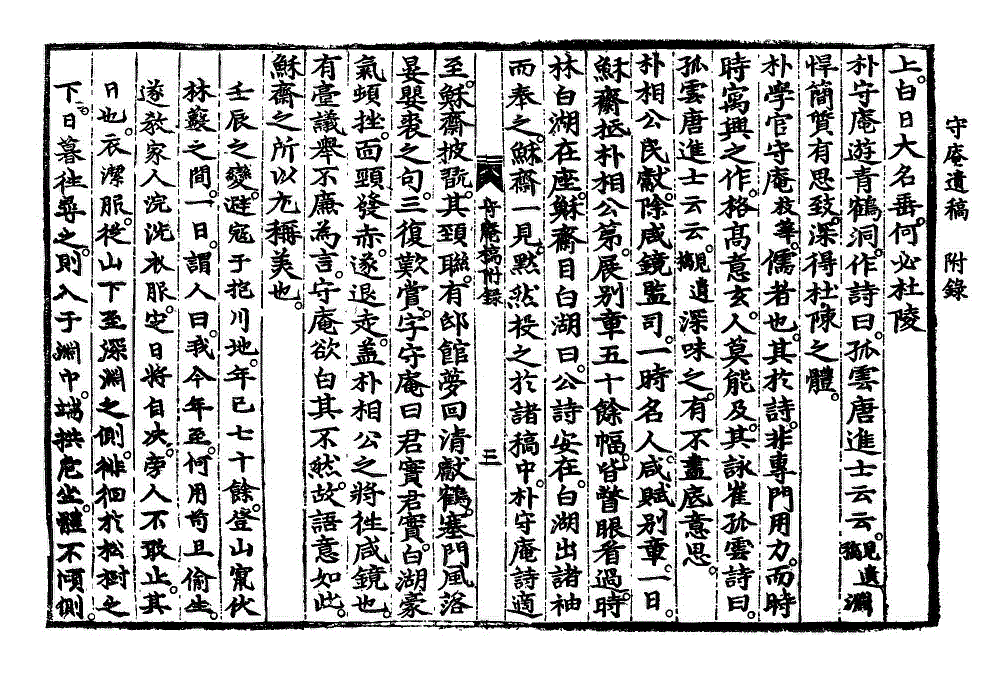 守庵遺稿　附錄
上。白日大名垂。何必杜陵
朴守庵遊靑鶴洞。作詩曰。孤雲唐進士云云。見遺稿 淵
悍簡質有思致。深得杜陳之體。
朴學官守庵枝華。儒者也。其於詩。非專門用力。而時
時寓興之作。格高意玄。人莫能及。其詠崔孤雲詩曰。
孤雲唐進士云云。見遺稿 深味之。有不盡底意思。
朴相公民獻。除咸鏡監司。一時名人。咸賦別章。一日。
穌齋抵朴相公第。展別章五十餘幅。皆瞥眼看過。時
林白湖在座。穌齋目白湖曰。公詩安在。白湖出諸袖
而奉之。穌齋一見。默然投之於諸稿中。朴守庵詩適
守庵稿附錄　三
至。穌齋披翫。其頸聯。有邸館夢回淸獻鶴。塞門風落
晏嬰裘之句。三復歎賞。字守庵曰君實君實。白湖豪
氣頓挫。面頸發赤。遂退走。盖朴相公之將徃咸鏡也。
有臺議擧不廉為言。守庵欲白其不然。故語意如此。
穌齋之所以尤稱美也。
壬辰之變。避寇于抱川地。年已七十餘。登山竄伏
林藪之間。一日。謂人曰。我今年至。何用苟且偷生。
遂敎家人浣洗衣服。定日將自决。旁人不敢止。其
日也。衣潔服。從山下至深淵之側。徘徊於松樹之
下。日暮徃尋之。則入于淵中。端拱危坐。體不傾側。